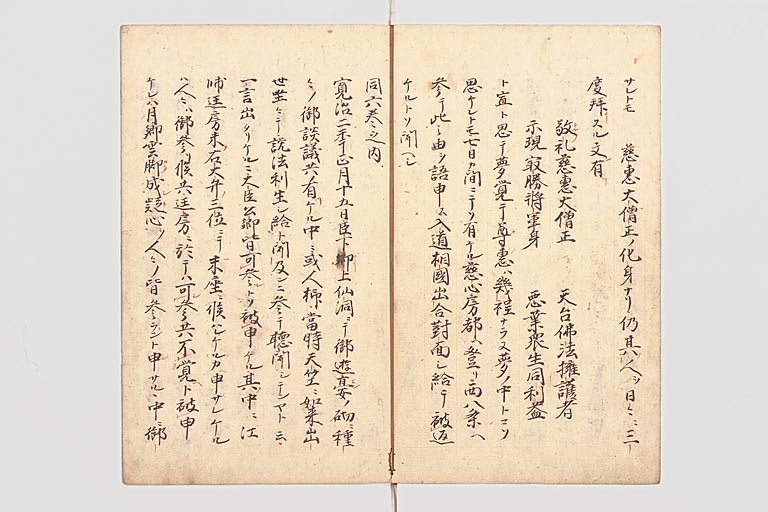 サレトモ 慈惠大僧正ノ化身ナリ仍其人ヲ日々ニ三
度拜スル文有
敬礼慈惠大僧正 天台佛法擁護者
示現㝡勝將軍身 惡業衆生同利益
ト宣ト思テ夢覚テ尊惠ハ幾程ナラヌ夢ノ中トコソ
思ケレトモ七日カ間ニテソ有ケル慈心房都ヘ登リ西八条ヘ
参テ此ミ由ヲ語申ス入道相國出合對面シ給テ被返
ケルトソ聞ヘシ
同六巻之内
寛治二年正月十五日臣下卿上仙洞ニテ御遊宴ノ砌ニ種
々ノ御談議共ノ有ケル中ニ或人柳當時天竺ニ如来出
世坐シテ説法利生シ給ト聞及シニ参テ聽聞シテンヤト云
一言出タリケルニ大臣公卿皆可参トソ被申ケル其中ニ江
師匡房未右大弁三位ニテ末座ニ候ハレケルカ申サレケル
ハ人々ハ御参リ候共匡房ニ於テハ可参共不覚ト被申
ケレハ月卿雲脚成疑心ヲ人々ノ皆参ラント申サルヽ中ニ御